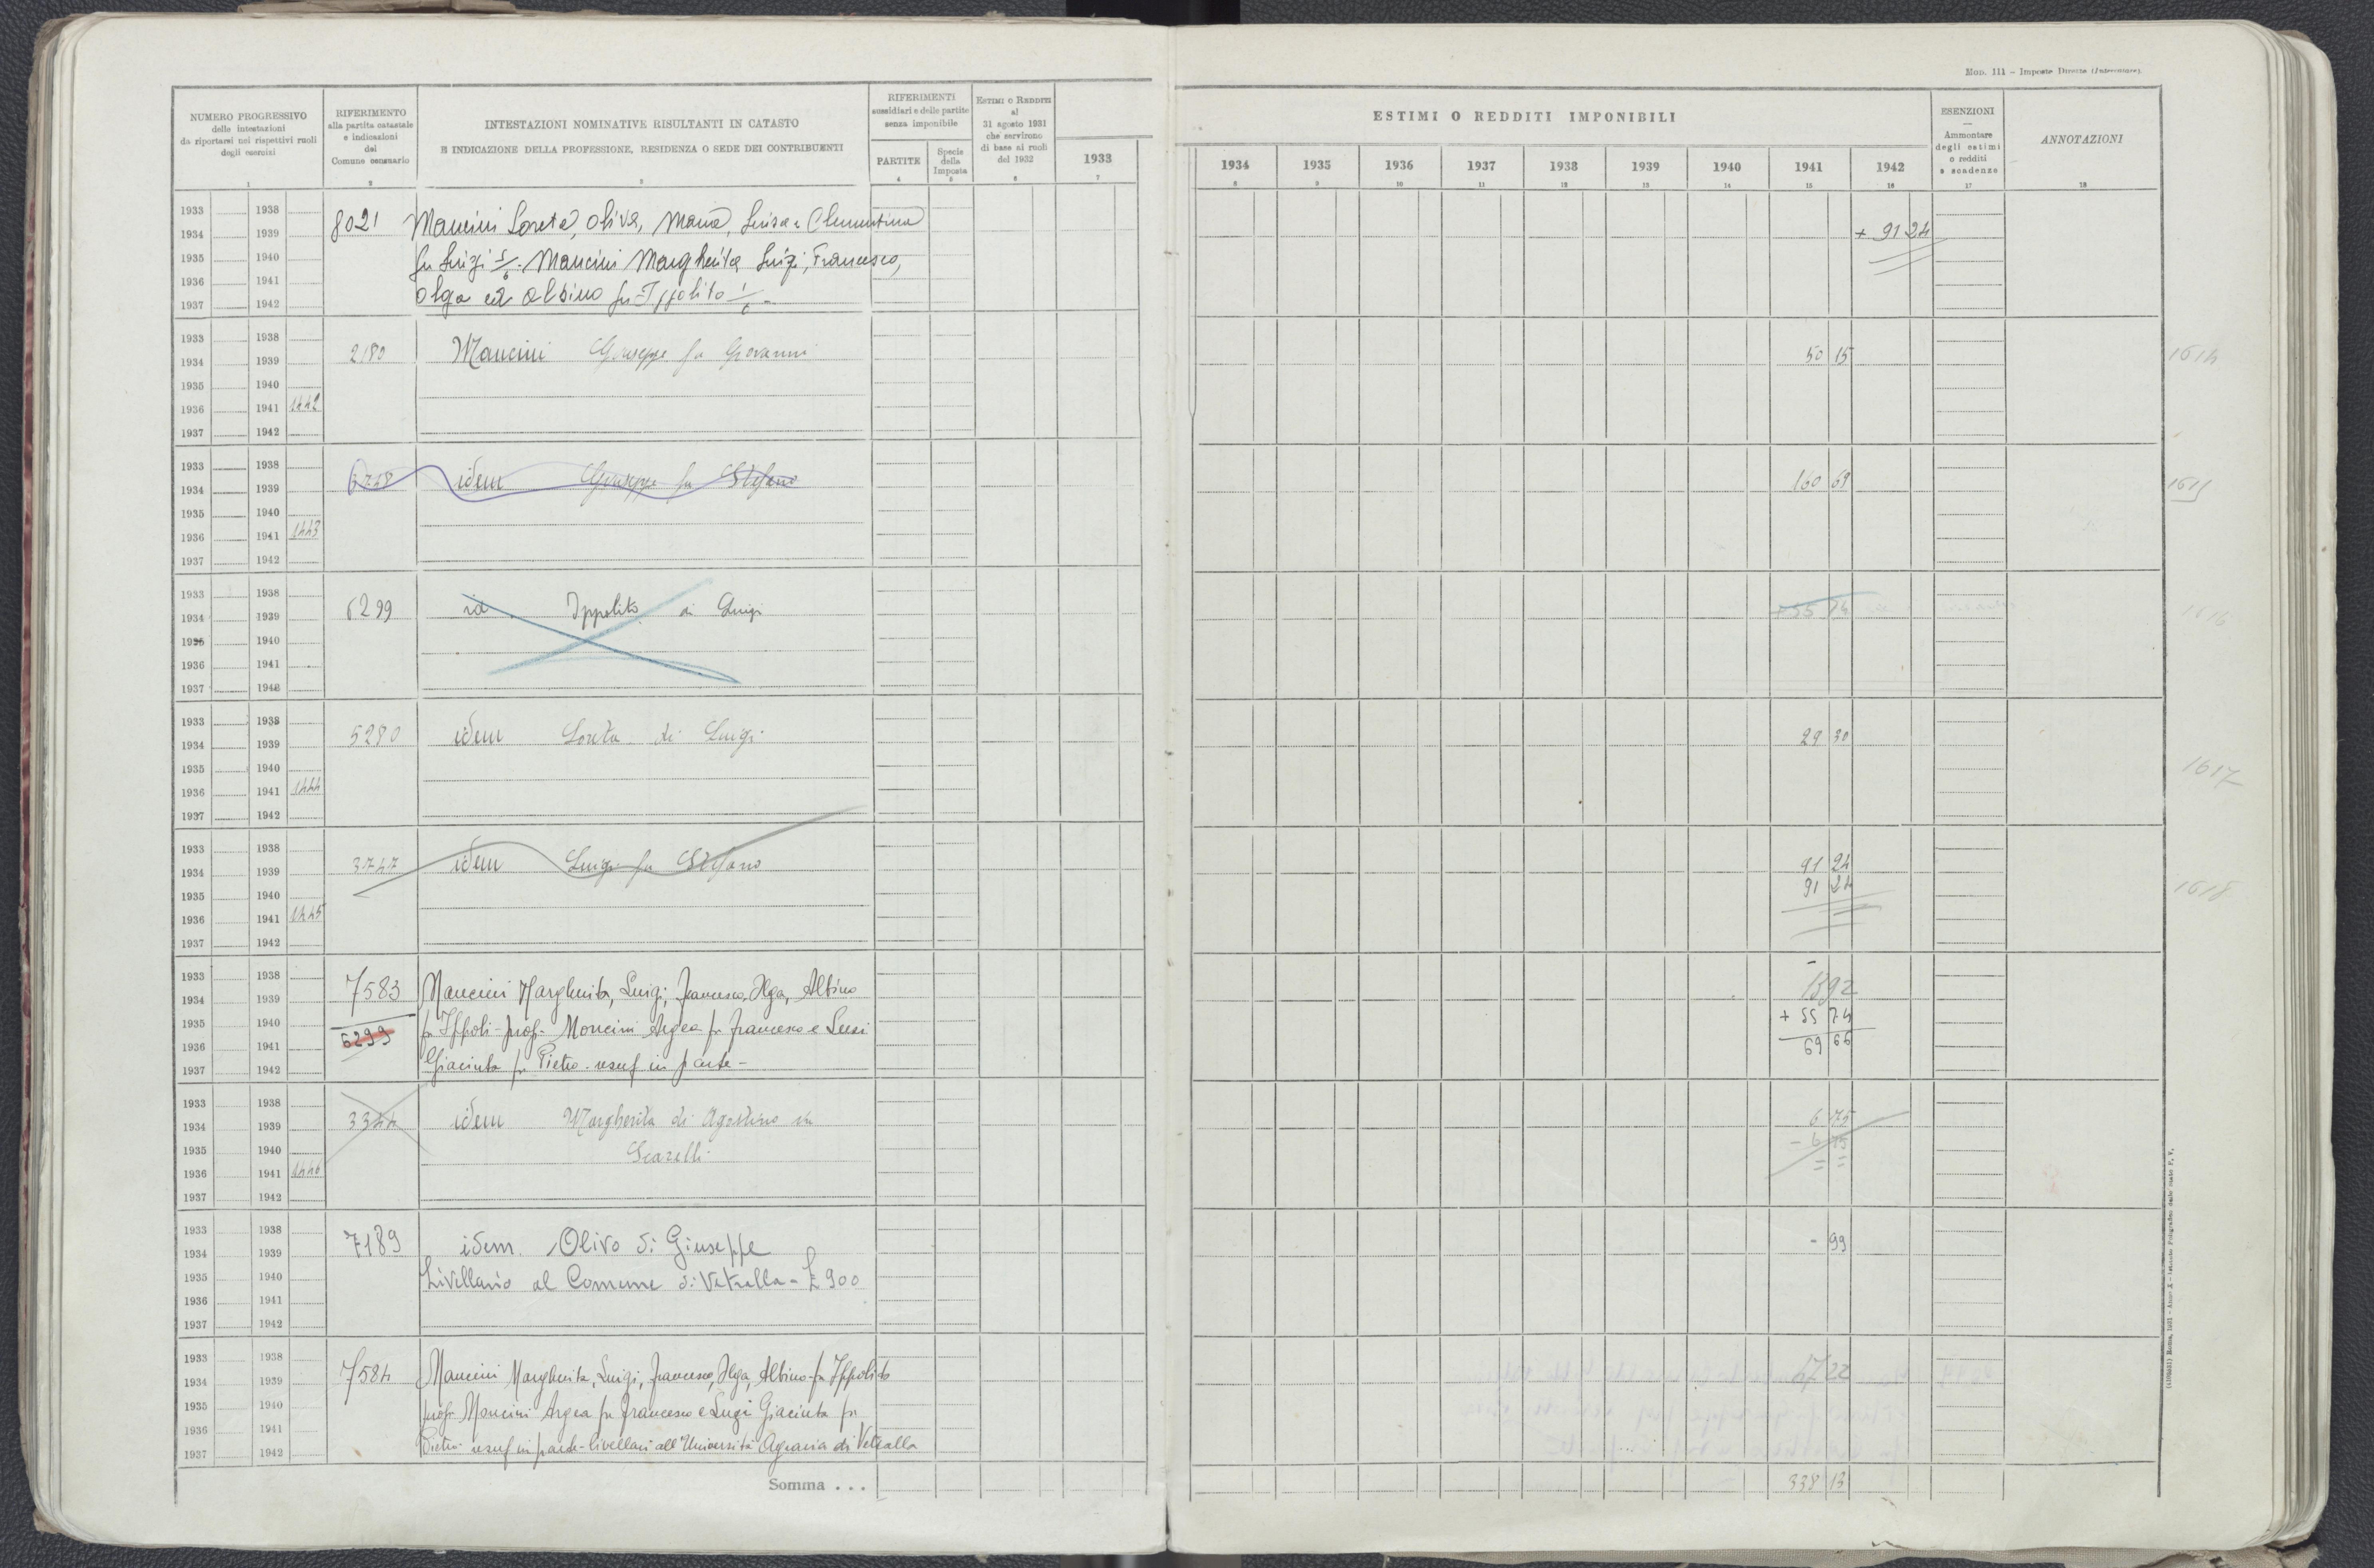 Mod. 111 – Imposte Dirette (Intercalare).
NUMERO PROGRESSIVO
delle intestazioni
da riportarsi nei rispettivi ruoli
degli esercizi
1
RIFERIMENTO
alla partita catastale
e indicazioni
del
Comune censuario
2
INTESTAZIONI NOMINATIVE RISULTANTI IN CATASTO
E INDICAZIONE DELLA PROFESSIONE, RESIDENZA O SEDE DEI CONTRIBUENTI
3
RIFERIMENTI
sussidiari e delle partite
senza imponibile
PARTITE
4
Specie
della
Imposta
5
ESTIMI O REDDITI
al
31 agosto 1931
che servirono
di base ai ruoli
del 1932
6
1933
7
ESTIMI O REDDITI IMPONIBILI
1934 1935 1936 1937 1938 1939 1940 1941 1942
8 9 10 11 12 13 14 15 16
ESENZIONI
—
Ammontare
degli estimi
o redditi
e scadenze
17
ANNOTAZIONI
18
1933 1938
1934 1939
1935 1940
1936 1941
1937 1942
8021 Mancini Loreta, Oliva, Maria, Luisa e Clementina
fu Luigi 5/6 - Mancini Margherita Luigi, Francesco,
Olga ed Albino fu Ippolito 1/6 -
+ 91 24
1933 1938
1934 1939
1935 1940
1936 1941 1442
1937 1942
2180 Mancini Giuseppe fu Giovanni
50 15
1614
1933 1938
1934 1939
1935 1940
1936 1941 1443
1937 1942
6748 idem Giuseppe fu Stefano
160 69
1615
1933 1938
1934 1939
1935 1940
1936 1941
1937 1942
6299 id Ippolito di Luigi
55 74
1616
1933 1938
1934 1939
1935 1940
1936 1941 1444
1937 1942
5280 idem Loreta di Luigi
29 30
1617
1933 1938
1934 1939
1935 1940
1936 1941 1445
1937 1942
3747 idem Luigi fu Stefano
91 24
91 24
1618
1933 1938
1934 1939
1935 1940
1936 1941
1937 1942
7583 Mancini Margherita, Luigi, Francesco, Olga, Albino
6299 fu Ippoli- prop. Mancini Argea fu Francesco e Luzi
Giacinta fu Pietro - usuf in parte -
13 92
+ 55 74
69 66
1933 1938
1934 1939
1935 1940
1936 1941 1446
1937 1942
3344 idem Margherita di Agostino in
Scarelli
6 75
- 6 75
= =
1933 1938
1934 1939
1935 1940
1936 1941
1937 1942
7189 idem. Olivo di Giuseppe
Livellario al Comune di Vetralla - £ 900
- 99
1933 1938
1934 1939
1935 1940
1936 1941
1937 1942
7584 Mancini Margherita, Luigi, Francesco, Olga, Albino fu Ippolito
prop. Mancini Argea fu Francesco e Luzi Giacinta fu
Pietro - usuf in parte - livellari all'Università Agraria di Vetralla
17 22
Somma . . .
338 13